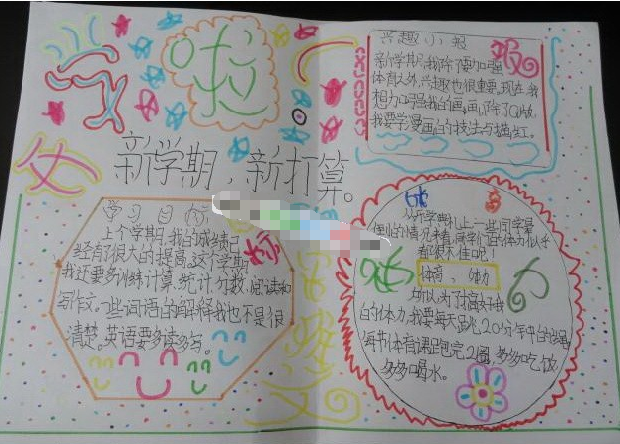 啦
新学期,新打算。
兴趣小报
新学期,我除了要加强
体育外,兴趣也很重要,现在,我
想加强我的画画,除了Q版,
我要学漫画的技法与描红。
学习目标
上个学期,我的成绩已
经有了很大的提高,这个学期
我还要多训练计算,统计,分数,阅读和
写作文。一些词语的解释我也不是很
清楚。英语要多读多写。
从开学典礼上一些同学晕
倒的情况来看,同学们的体力似乎
都很不佳呢!
体育、体力
所以,为了提高好我
的体力,我要每天跳20分钟的绳,
每节体育课跑完2圈,多多吃饭,
多多喝水。